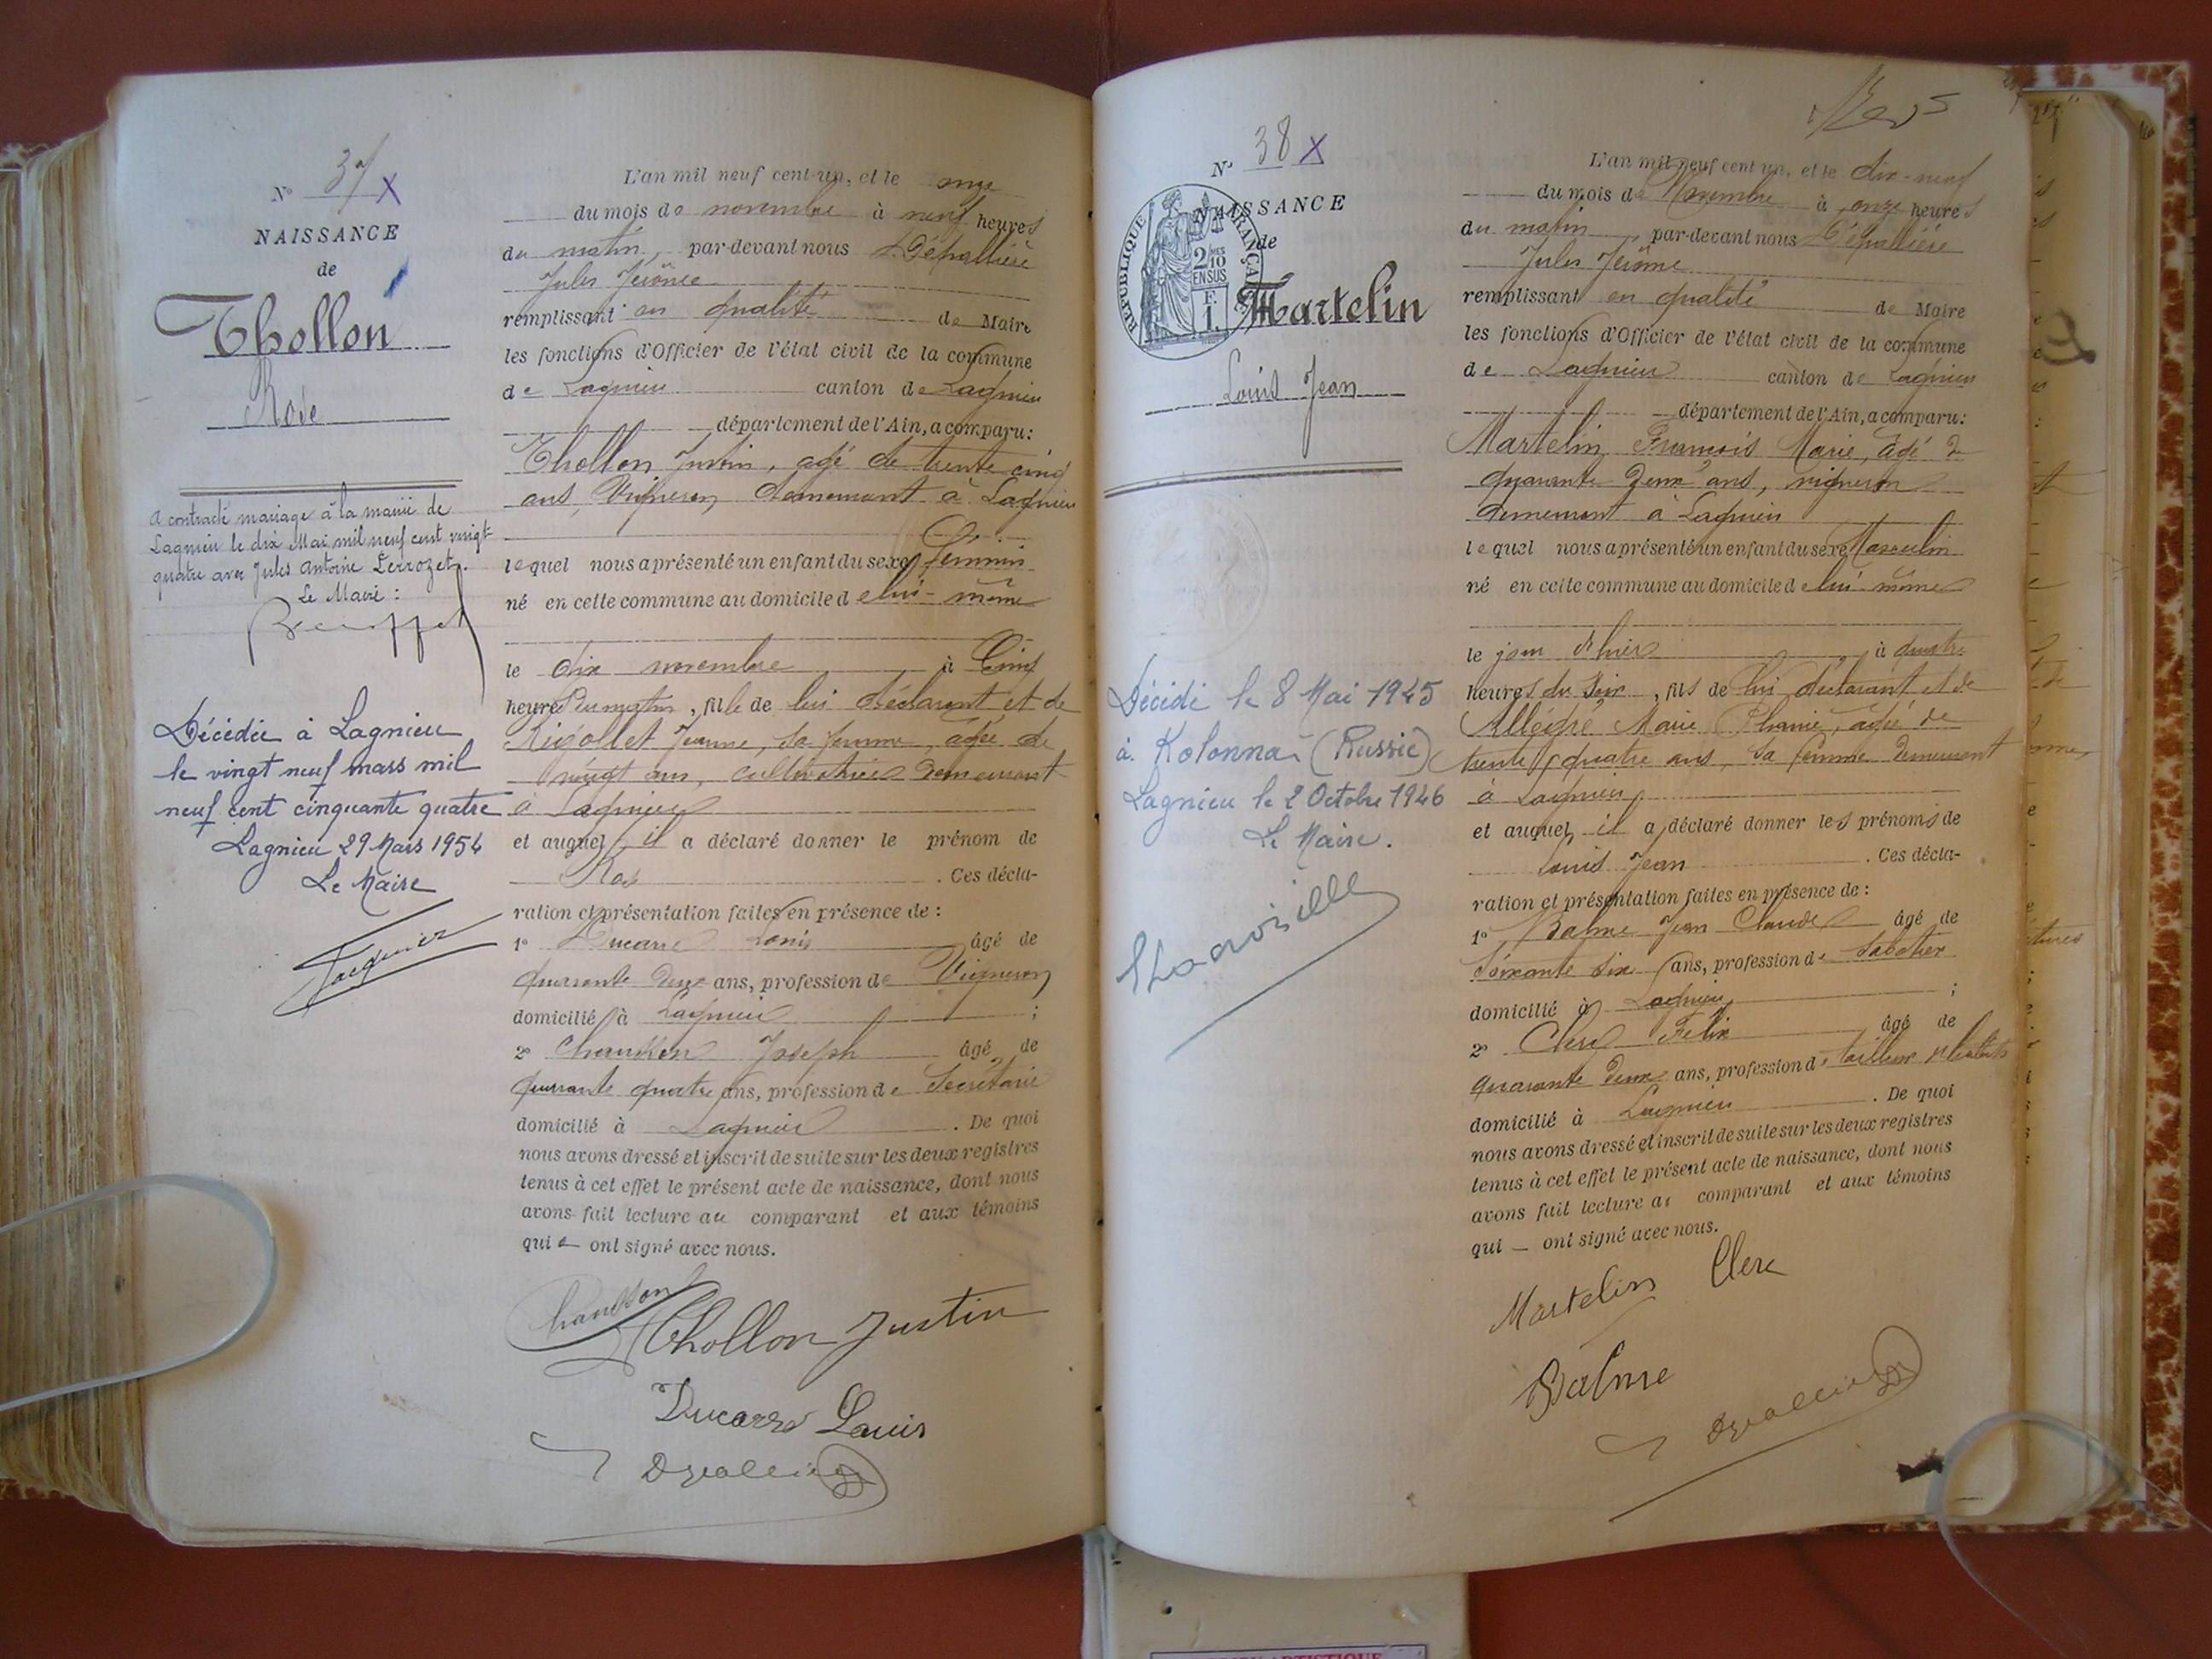 N° 37 X
NAISSANCE
de
Thollon
Rose
A contracté mariage à la mairie de
Lagnieu le dix Mai mil neuf cent vingt
quatre avec Jules Antoine
Le Maire :
Décédée à Lagnieu
le vingt neuf mars mil
neuf cent cinquante quatre
Lagnieu 29 Mars 1954
Le Maire
L'an mil neuf cent un, et le onze
du mois de novembre à neuf heures
du matin, par-devant nous Dépallière
Jules Jérôme
remplissant en qualité de Maire
les fonctions d'Officier de l'état civil de la commune
de Lagnieu canton de Lagnieu
département de l'Ain, a comparu :
Thollon Justin, âgé de trente cinq
ans, Vigneron demeurant à Lagnieu
lequel nous a présenté un enfant du sexe féminin
né en cette commune au domicile de lui-même
le dix novembre à Cinq
heures du matin, fille de lui déclarant et de
Rigollet Jeanne, sa femme, âgée de
vingt ans, cultivatrice demeurant
à Lagnieu
et auquel il a déclaré donner le prénom de
Rose . Ces décla-
ration et présentation faites en présence de :
1° Ducarre Louis âgé de
quarante deux ans, profession de Vigneron
domicilié à Lagnieu ;
2° Joseph âgé de
quarante quatre ans, profession de Secrétaire
domicilié à Lagnieu . De quoi
nous avons dressé et inscrit de suite sur les deux registres
tenus à cet effet le présent acte de naissance, dont nous
avons fait lecture au comparant et aux témoins
qui ont signé avec nous.
Thollon Justin
Ducarre Louis
N° 38 X
NAISSANCE
de
RÉPUBLIQUE FRANÇAISE
2/10
EN SUS
F.
1.
Martelin
Louis Jean
Décédé le 8 Mai 1945
à Kolonna (Russie)
Lagnieu le 2 Octobre 1946
Le Maire.
L'an mil neuf cent un, et le dix-neuf
du mois de Novembre à onze heures
du matin, par-devant nous Dépallière
Jules Jérôme
remplissant en qualité de Maire
les fonctions d'Officier de l'état civil de la commune
de Lagnieu canton de Lagnieu
département de l'Ain, a comparu :
Martelin François Marie, âgé de
quarante deux ans, vigneron
demeurant à Lagnieu
lequel nous a présenté un enfant du sexe Masculin
né en cette commune au domicile de lui-même
le jour d'hier à quatre
heures du soir, fils de lui déclarant et de
Allégre Marie, âgée de
trente quatre ans, sa femme demeurant
à Lagnieu
et auquel il a déclaré donner les prénoms de
Louis Jean . Ces décla-
ration et présentation faites en présence de :
1° Balme Jean Claude âgé de
soixante six ans, profession de Sabotier
domicilié à Lagnieu ;
2° Clerc Félix âgé de
quarante deux ans, profession de tailleur d'habits
domicilié à Lagnieu . De quoi
nous avons dressé et inscrit de suite sur les deux registres
tenus à cet effet le présent acte de naissance, dont nous
avons fait lecture au comparant et aux témoins
qui — ont signé avec nous.
Martelin Clerc
Balme